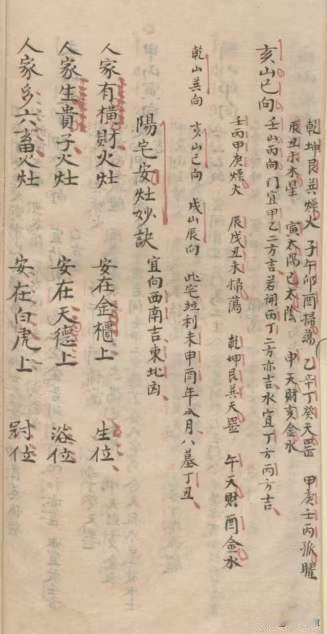 乾坤艮巽燥火 子午卯酉掃蕩 乙辛丁癸天罡 甲庚壬丙孤曜
辰戌丑未木星 寅太陽 巳太陰 申天財 亥金水
亥山巳向 壬山丙向 门宜甲乙二方吉若祠丙丁二方亦吉水宜丁方丙方吉
壬丙甲庚燥火 辰戌丑未掃蕩 乾坤艮巽天罡 午天財 酉金水
乾山巽向 亥山巳向 戌山辰向 此宅坦利未申酉年五月八墓丁丑
陽宅安灶妙訣 宜向西南吉東北凶
人家有橫財火灶 安在金櫃上 生位
人家生貴子火灶 安在天德上 浴位
人家多六畜火灶 安在白虎上 冠位